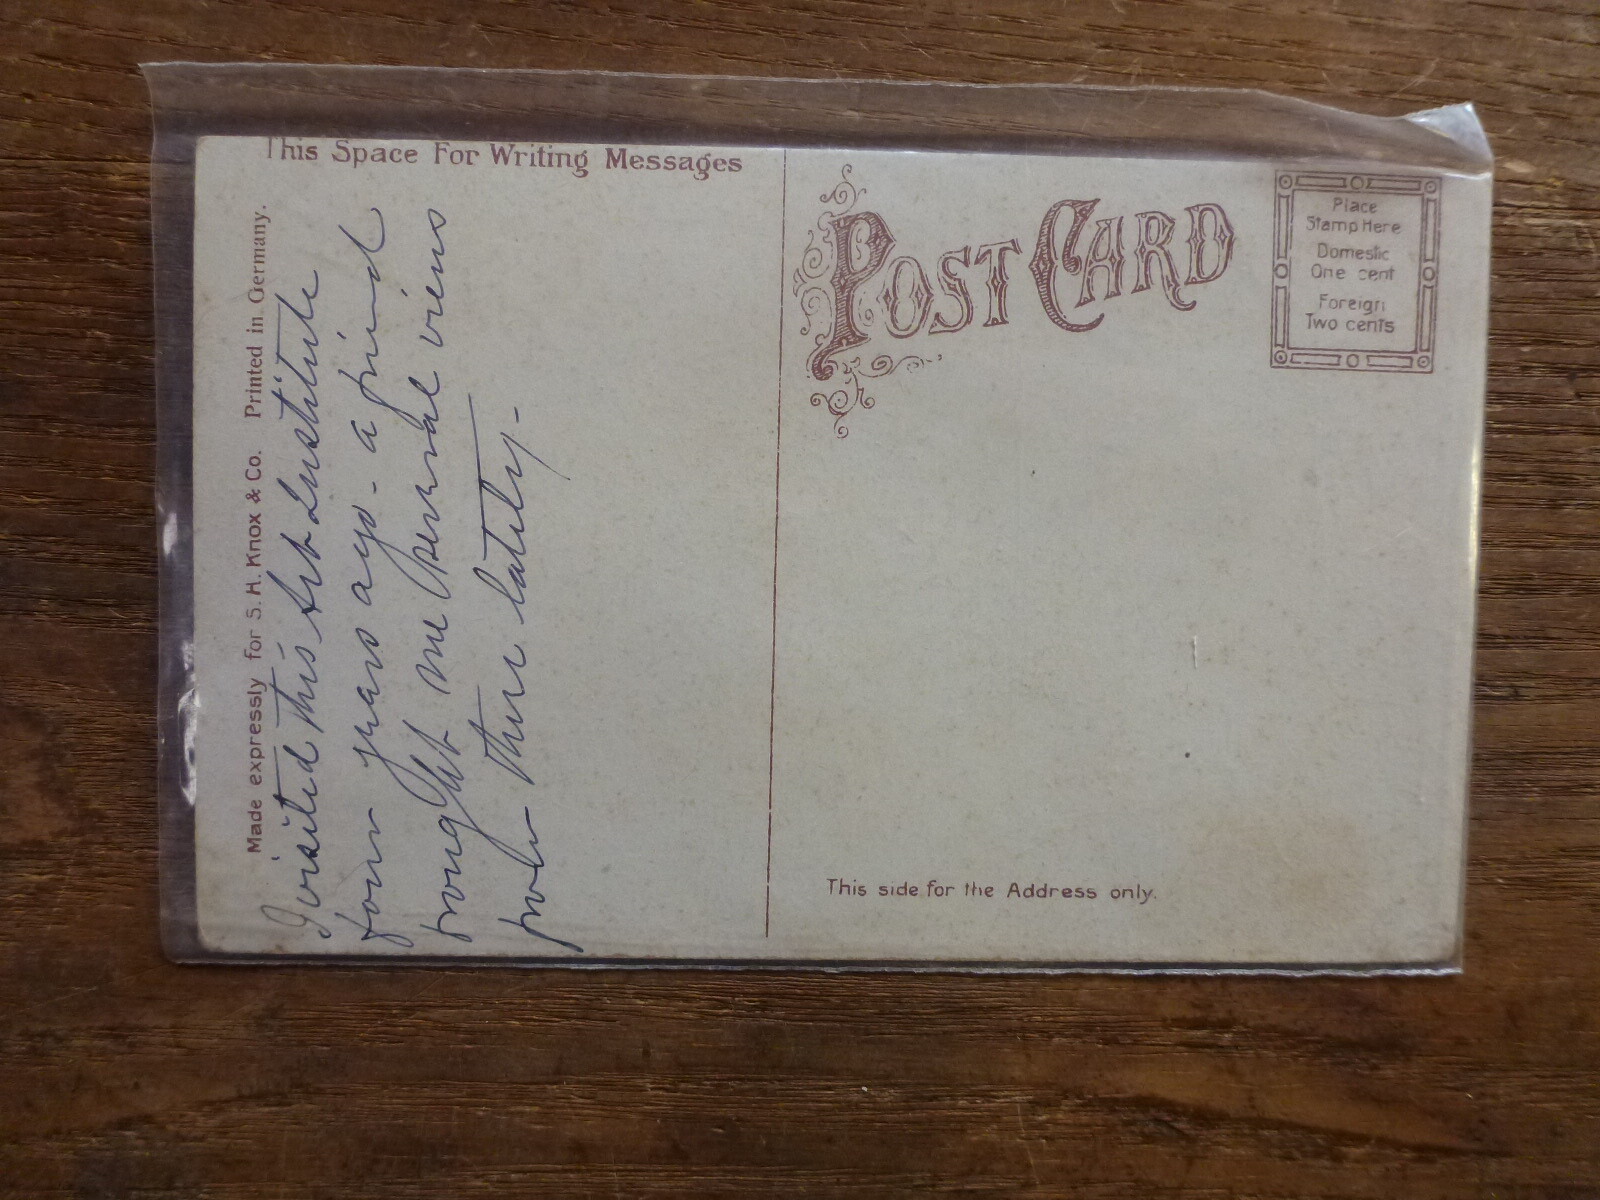 This Space For Writing Messages
Made expressly for S. H. Knox & Co. Printed in Germany.
I visited this Art Institute
four years ago - a friend
brought me several views
from there lately -
POST CARD
Place
Stamp Here
Domestic
One cent
Foreign
Two cents
This side for the Address only.